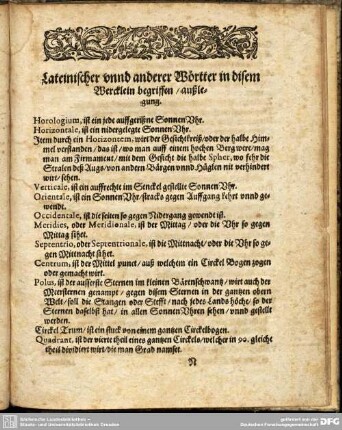 Lateinischer vnnd anderer Wörtter in disem
Wercklein begriffen / außle-
gung.
Horologium, ist ein jede auffgerißne Sonnen Vhr.
Horizontale, ist ein nidergelegte Sonnen Vhr.
Item durch ein Horizontem, wirt der Gesichtkreiß / oder der halbe Him-
mel verstanden / das ist / wo man auff einem hochen Berg were / mag
man am Firmament / mit dem Gesicht die halbe Spher, wo fehr die
Stralen deß Augs / von andern Bärgen vnnd Hüglen nit verhindert
wirt / sehen.
Verticale, ist ein auffrecht im Senckel gestellte Sonnen Vhr.
Orientale, ist ein Sonnen Vhr / stracks gegen Auffgang kehrt vnnd ge-
wendt.
Occidentale, ist die seiten so gegen Nidergang gewendt ist.
Meridies, oder Meridionale, ist der Mittag / oder die Vhr so gegen
Mittag sihet.
Septentrio, oder Septentrionale, ist die Mittnacht / oder die Vhr so ge-
gen Mittnacht sihet.
Centrum, ist der Mittel punct / auß welchem ein Circkel Bogen zogen
oder gemacht wirt.
Polus, ist der ausserste Sternen im kleinen Bärenschwantz / wirt auch der
Meersternen genampt / gegen disem Sternen in der gantzen obern
Welt / soll die Stangen oder Stefft / nach jedes Lands höche / so der
Sternen daselbst hat / in allen Sonnen Vhren sehen / vnnd gestellt
werden.
Circkel Trum / ist ein stuck von einem gantzen Circkelbogen.
Quadrant, ist der vierte theil eines gantzen Circkels / welcher in 90. gleiche
theil dividirt wirt / die man Grad namset.
N
Sächsische Landesbibliothek –
Staats- und Universitätsbibliothek Dresden
gefördert von der
Deutschen Forschungsgemeinschaft
DFG